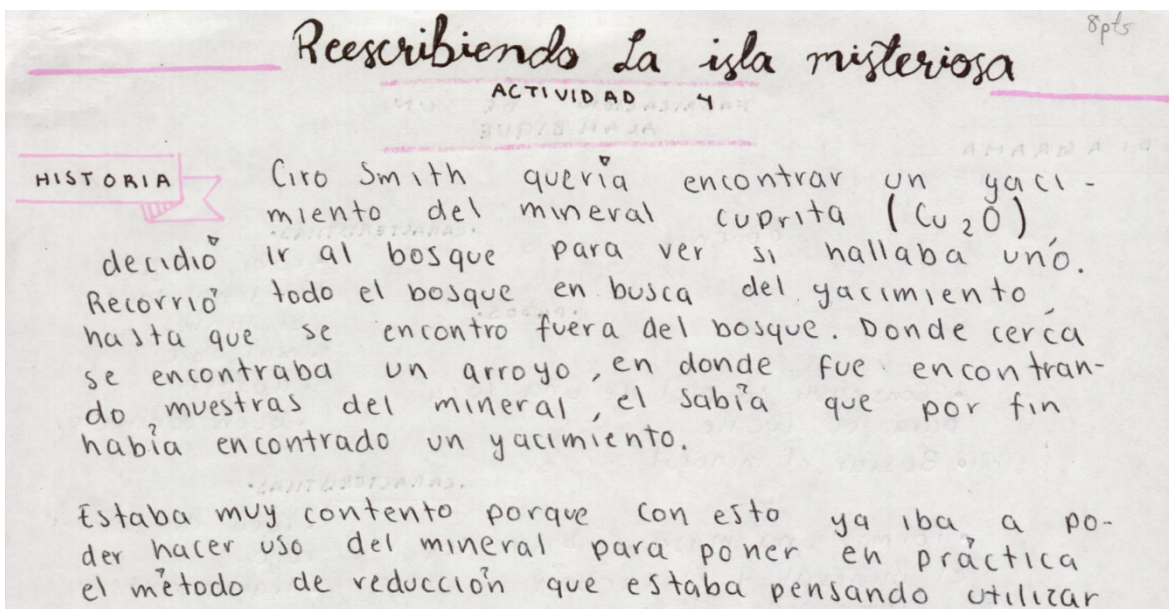 8pts
Reescribiendo La isla misteriosa
ACTIVIDAD 4
HISTORIA
Ciro Smith quería encontrar un yaci-
miento del mineral cuprita (Cu₂O)
decidió ir al bosque para ver si hallaba uno.
Recorrió todo el bosque en busca del yacimiento
hasta que se encontro fuera del bosque. Donde cerca
se encontraba un arroyo, en donde fue encontran-
do muestras del mineral, el sabía que por fin
había encontrado un yacimiento.
Estaba muy contento porque con esto ya iba a po-
der hacer uso del mineral para poner en práctica
el método de reducción que estaba pensando utilizar